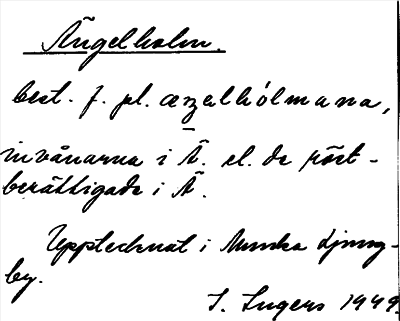 Ängelholm.
best. f. pl. æŋəlhólmana,
invånarna i Ä. el. de röst-
berättigade i Ä.
Upptecknat i Munka Ljung-
by.
S. Ingers 1949.